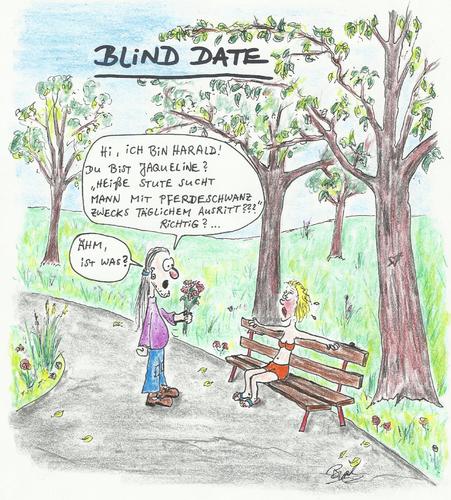 BLIND DATE
HI, ICH BIN HARALD!
DU BIST JAQUELINE?
"HEIßE STUTE SUCHT
MANN MIT PFERDESCHWANZ
ZWECKS TÄGLICHEM AUSRITT???"
RICHTIG?...
ÄHM,
IST WAS?